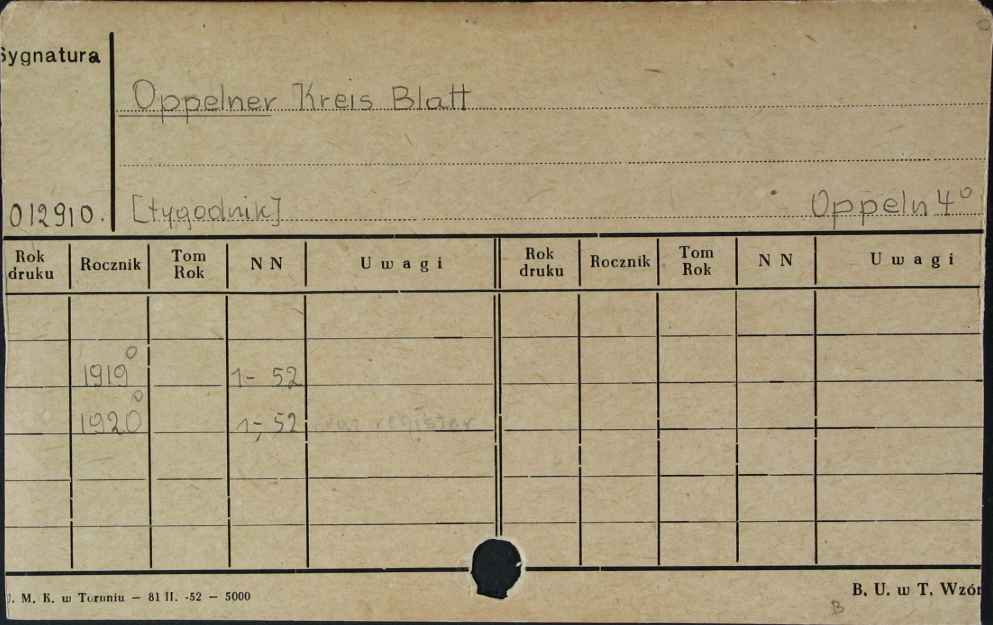 Sygnatura
Oppelner Kreis Blatt
012910. [tygodnik] Oppeln 4°
Rok druku Rocznik Tom Rok N N Uwagi Rok druku Rocznik Tom Rok N N Uwagi
1919° 1- 52
1920° 1- 52 register
U. M. K. w Toruniu — 81 II. -52 — 5000
B. U. w T. Wzór
B